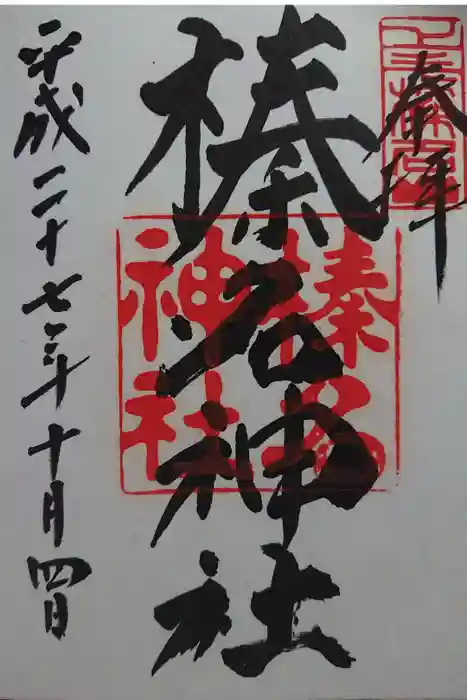 奉拝
榛名神社
榛名神社
平成二十七年十月四日